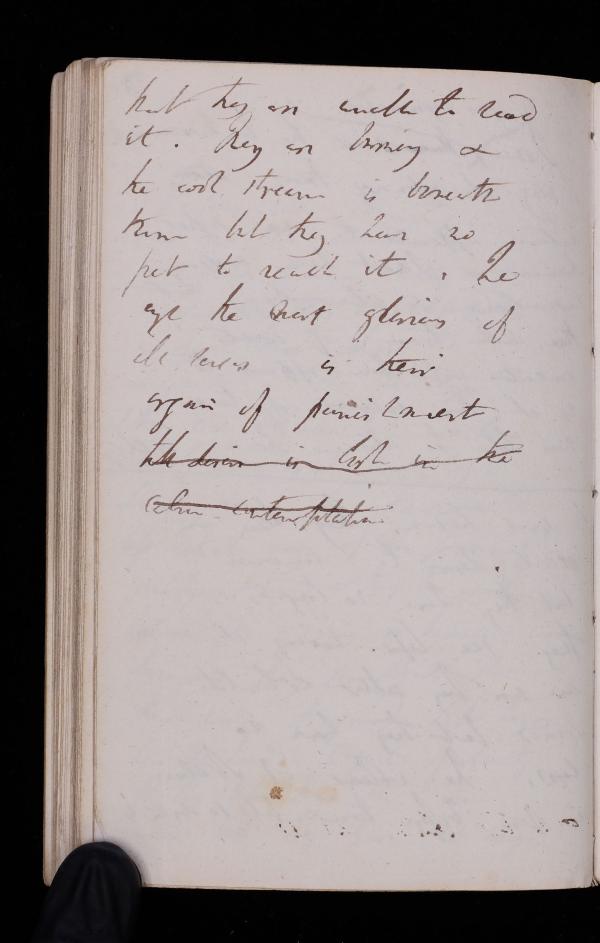 but they are unable to read
it. They are burning &
the cool stream is beneath
them but they have no
feet to reach it. The
eye the most glorious of
all senses is their
organ of punishment
till desire is lost in the
calm contemplation